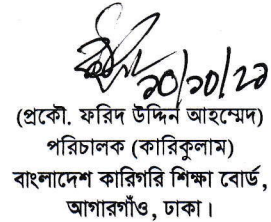 ২০/১০/২১
(প্রকৌ. ফরিদ উদ্দিন আহম্মেদ)
পরিচালক (কারিকুলাম)
বাংলাদেশ কারিগরি শিক্ষা বোর্ড,
আগারগাঁও, ঢাকা।